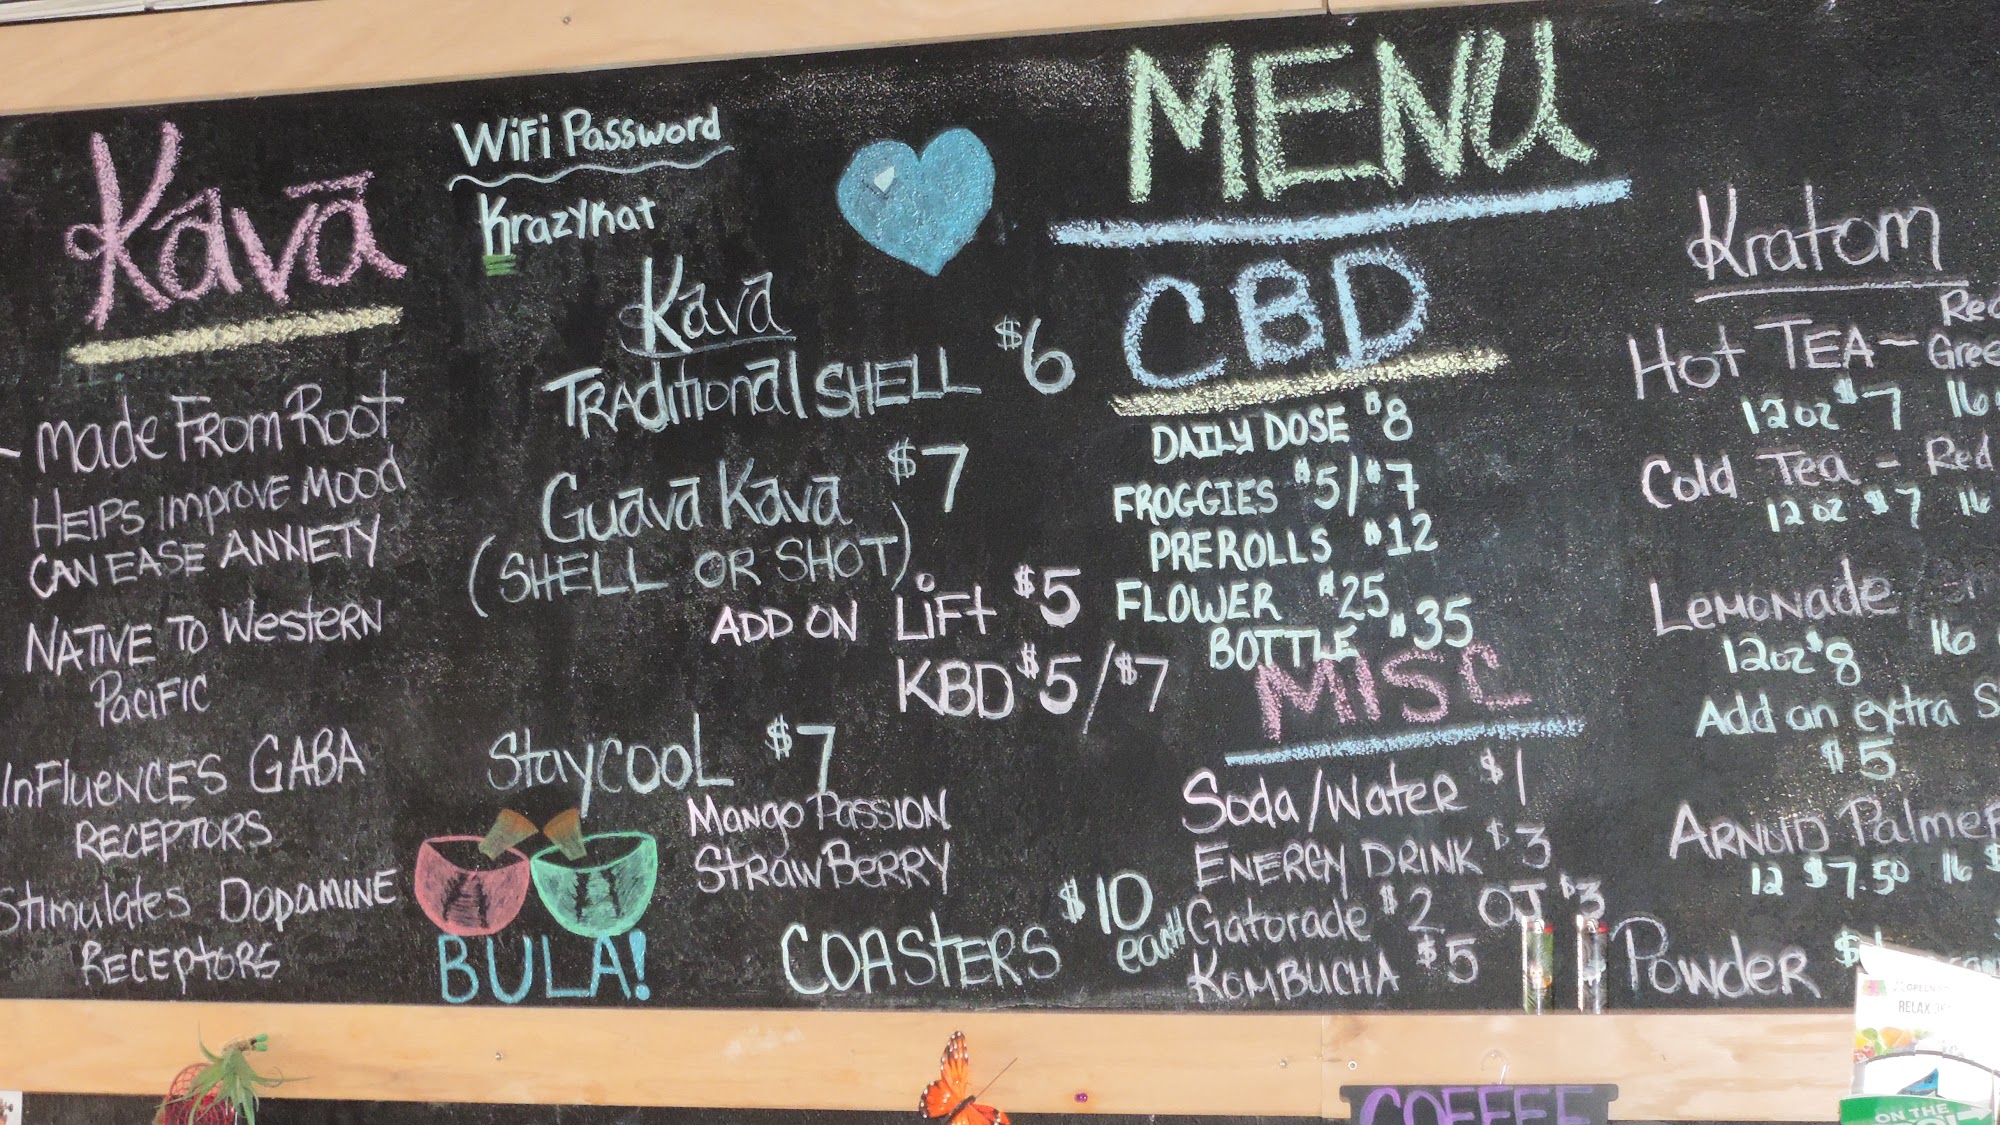 Kava
- made From Root
HElPS Improve MOOD
CAN EASE ANXIETY
NATIVE TO Western
PACIFIC
InFluENCES GABA
RECEPTORS
Stimulates DOpAMINE
RECEptORS
WiFi Password
Krazykat
Kava
TRAditional SHELL $6
Guava Kava $7
(SHELL OR SHOT)
ADD ON LiFt $5
KBD $5/$7
Staycool $7
Mango Passion
StrawBerry
BULA!
COASTERS $10
each
MENU
CBD
DAILY DOSE $8
FROGGIES $5/$7
PREROLLS $12
FLOWER $25
BOTTLE $35
MISC
Soda/Water $1
ENERGY DRINK $3
Gatorade $2 OJ $3
KOMBUCHA $5
Kratom
Hot TEA - Red
Gree
12oz $7 16
Cold Tea - Red
12oz $7 16
LEMONade
12oz $8 16
Add an extra S
$5
ARNOlD Palmer
12 $7.50 16 $
Powder $
RELAX
COFFEE
ON THE